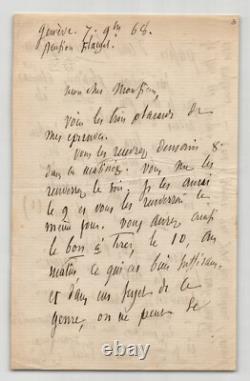 Genève. 7. 9bre 68.
pension Flaegel.
mon cher Monsieur,
voici les trois placards de
mes épreuves.
vous les recevrez demain 8
dans la matinée. vous me les
renverrez le soir, je les aurai
le 9 et vous les renverrai le
même jour. vous aurez ainsi
le bon à tirer, le 10, au
matin ce qui est bien suffisant.
et dans un sujet de ce
genre, on ne peut se